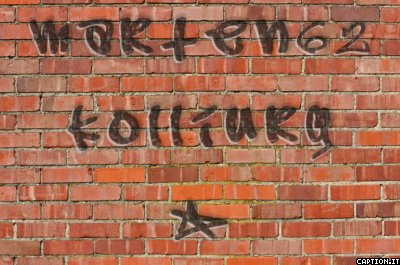 marten62
kolliarg
CAPTION.IT